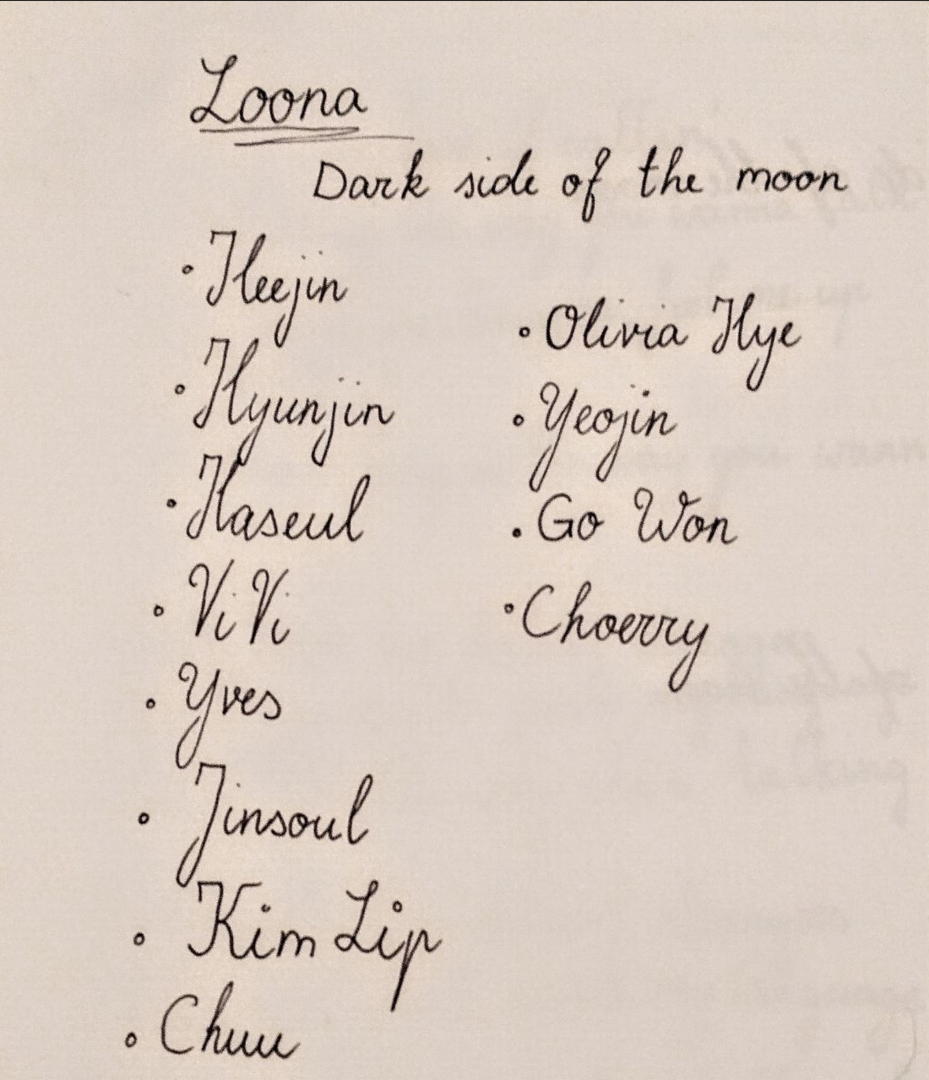 Loona
Dark side of the moon
• Heejin
• Hyunjin
• Haseul
• ViVi
• Yves
• Jinsoul
• Kim Lip
• Chuu
• Olivia Hye
• Yeojin
• Go Won
• Choerry